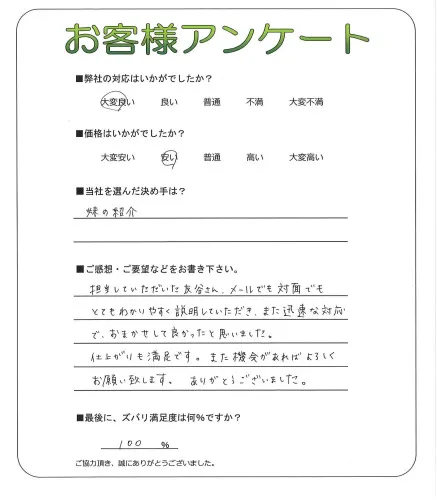 お客様アンケート
■弊社の対応はいかがでしたか？
大変良い 良い 普通 不満 大変不満
■価格はいかがでしたか？
大変安い 安い 普通 高い 大変高い
■当社を選んだ決め手は？
妹の紹介
■ご感想・ご要望などをお書き下さい。
担当していただいた友谷さん、メールでも対面でも
とてもわかりやすく説明していただき、また迅速な対応
で、おまかせして良かったと思いました。
仕上がりも満足です。また機会があればよろしく
お願い致します。 ありがとうございました。
■最後に、ズバリ満足度は何％ですか？
100 %
ご協力頂き、誠にありがとうございました。